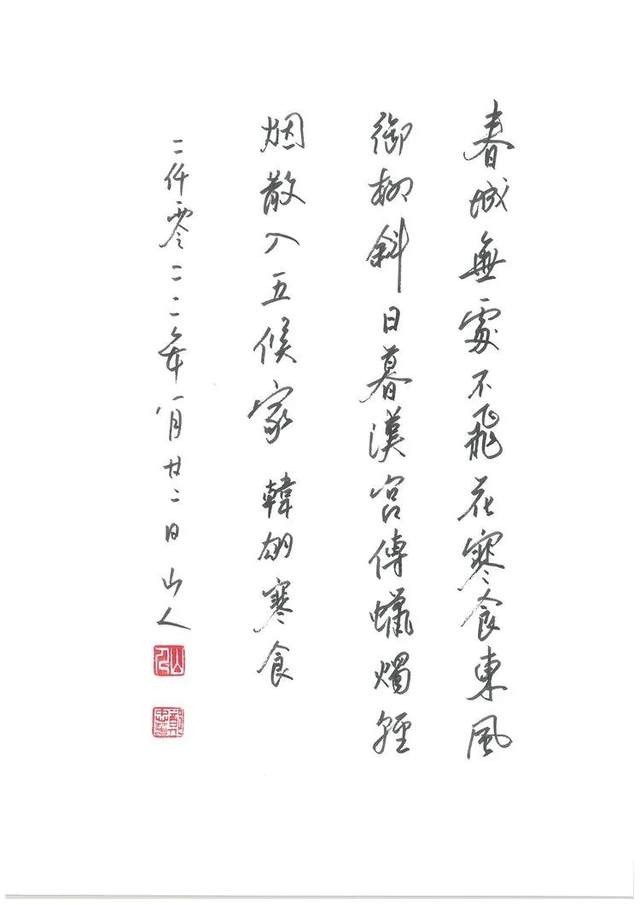 春城無處不飛花寒食東風
御柳斜日暮漢宮傳蠟燭輕
烟散入五候家 韓翃寒食
二仟零二二年八月廿二日山人
山人